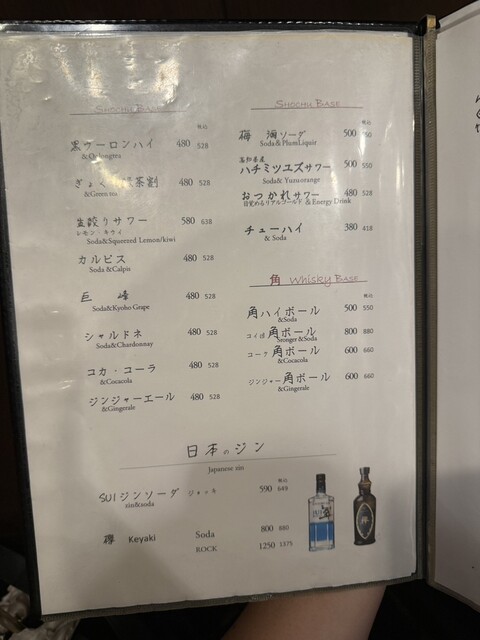 SHOCHU BASE
税込
黒ウーロンハイ 480 528
&Oolongtea
茶割 480 528
&Green tea
生絞りサワー 580 638
レモン・キウイ
Soda&Squeezed Lemon/kiwi
カルピス 480 528
Soda &Calpis
巨峰 480 528
Soda&Kyoho Grape
シャルドネ 480 528
Soda&Chardonnay
コカ・コーラ 480 528
&Cocacola
ジンジャーエール 480 528
&Gingerale
SHOCHU BASE
税込
梅酒ソーダ 500 550
Soda&PlumLiquir
高知県産
ハチミツユズサワー 500 550
Soda& Yuzuorange
おつかれサワー 480 528
目覚めるリアルゴールド & Energy Drink
チューハイ 380 418
& Soda
角 Whisky BASE
税込
角ハイボール 500 550
&Soda
コイ目角ボール 800 880
Stonger &Soda
コーク角ボール 600 660
&Cocacola
ジンジャー角ボール 600 660
&Gingerale
日本のジン
Japanese zin
税込
SUIジンソーダ ジョッキ 590 649
zin&soda
欅 Keyaki Soda 800 880
ROCK 1250 1375
翠
欅